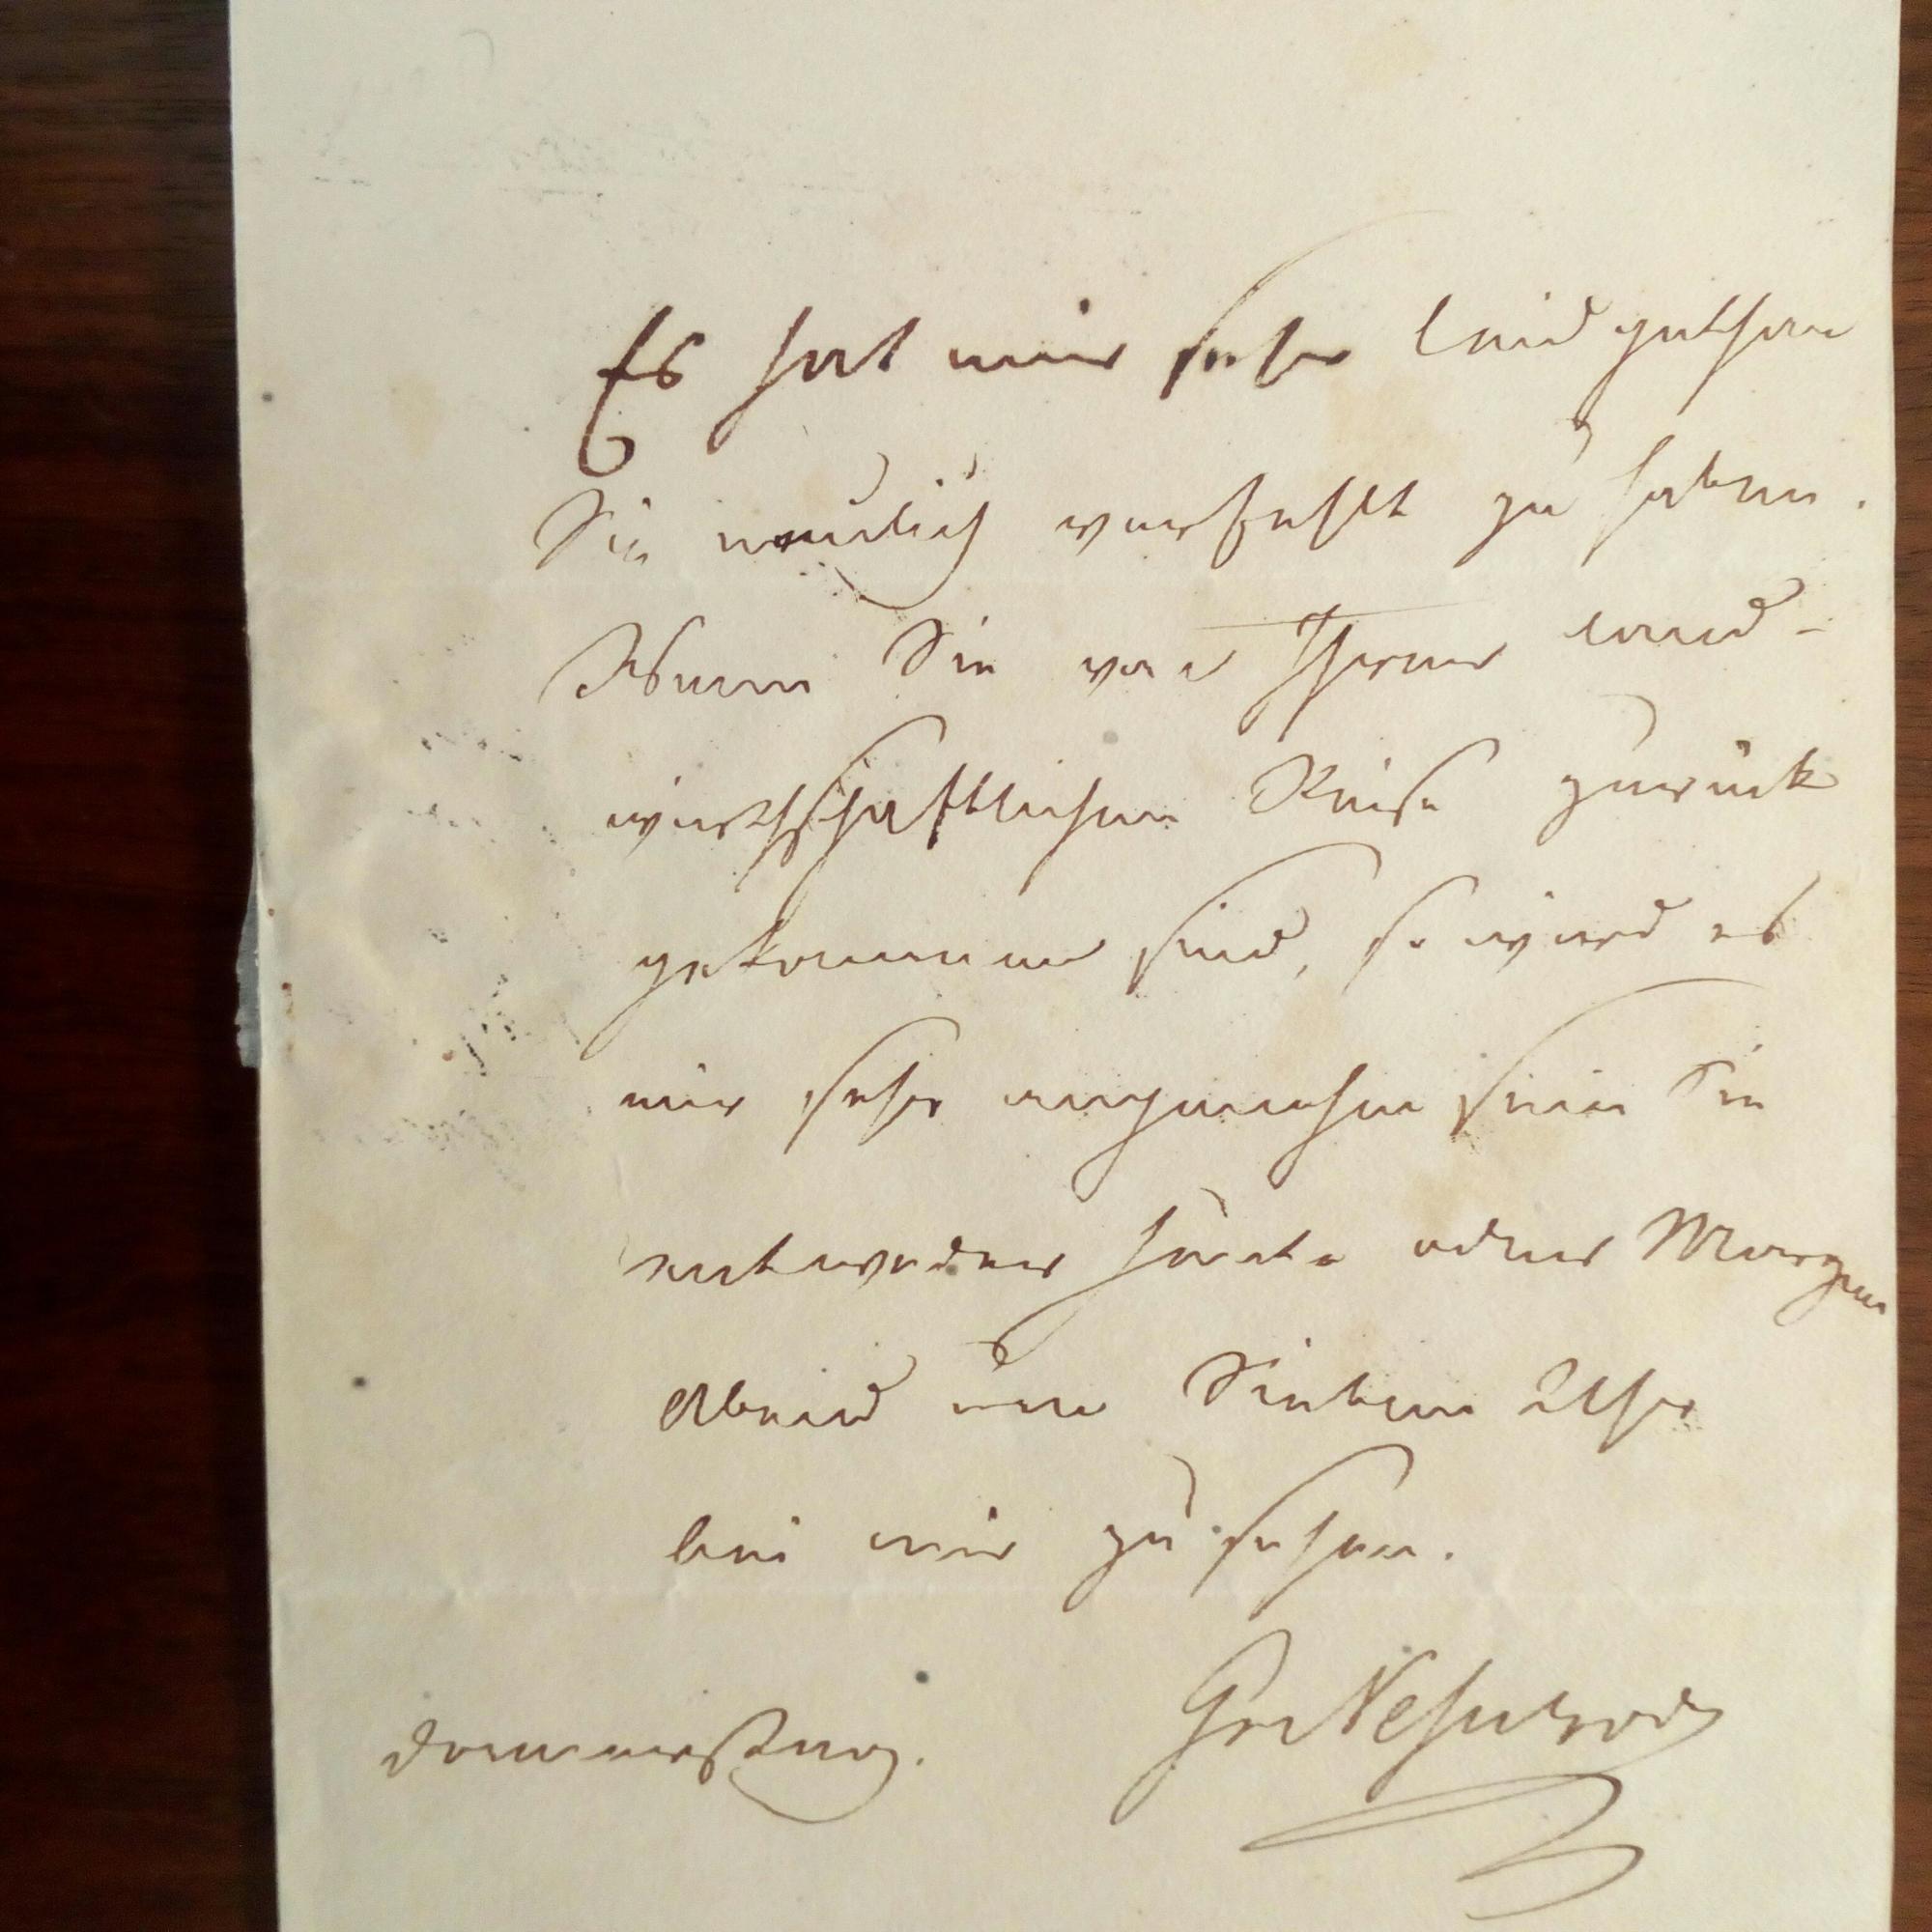 Es hat mir sehr leid gethan
Sie neulich verfehlt zu haben.
Wenn Sie von Ihrer land-
wirthschaftlichen Reise zurück
gekommen sind, so wird es
mir sehr angenehm sein Sie
entweder heute oder Morgen
Abend um Sieben Uhr
bei mir zu sehen.
Donnerstag.